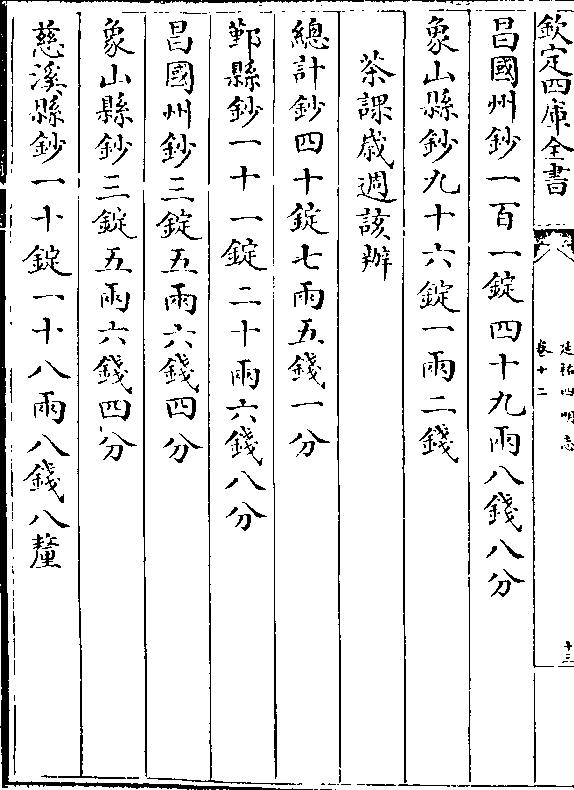 欽定四庫全書
延祐四明志
卷十二
十三
昌國州鈔一百一錠四十九兩八錢八分
象山縣鈔九十六錠一兩二錢
茶課歲週該辦
總計鈔四十錠七兩五錢一分
鄞縣鈔一十一錠二十兩六錢八分
昌國州鈔三錠五兩六錢四分
象山縣鈔三錠五兩六錢四分
慈溪縣鈔一十錠一十八兩八錢八釐